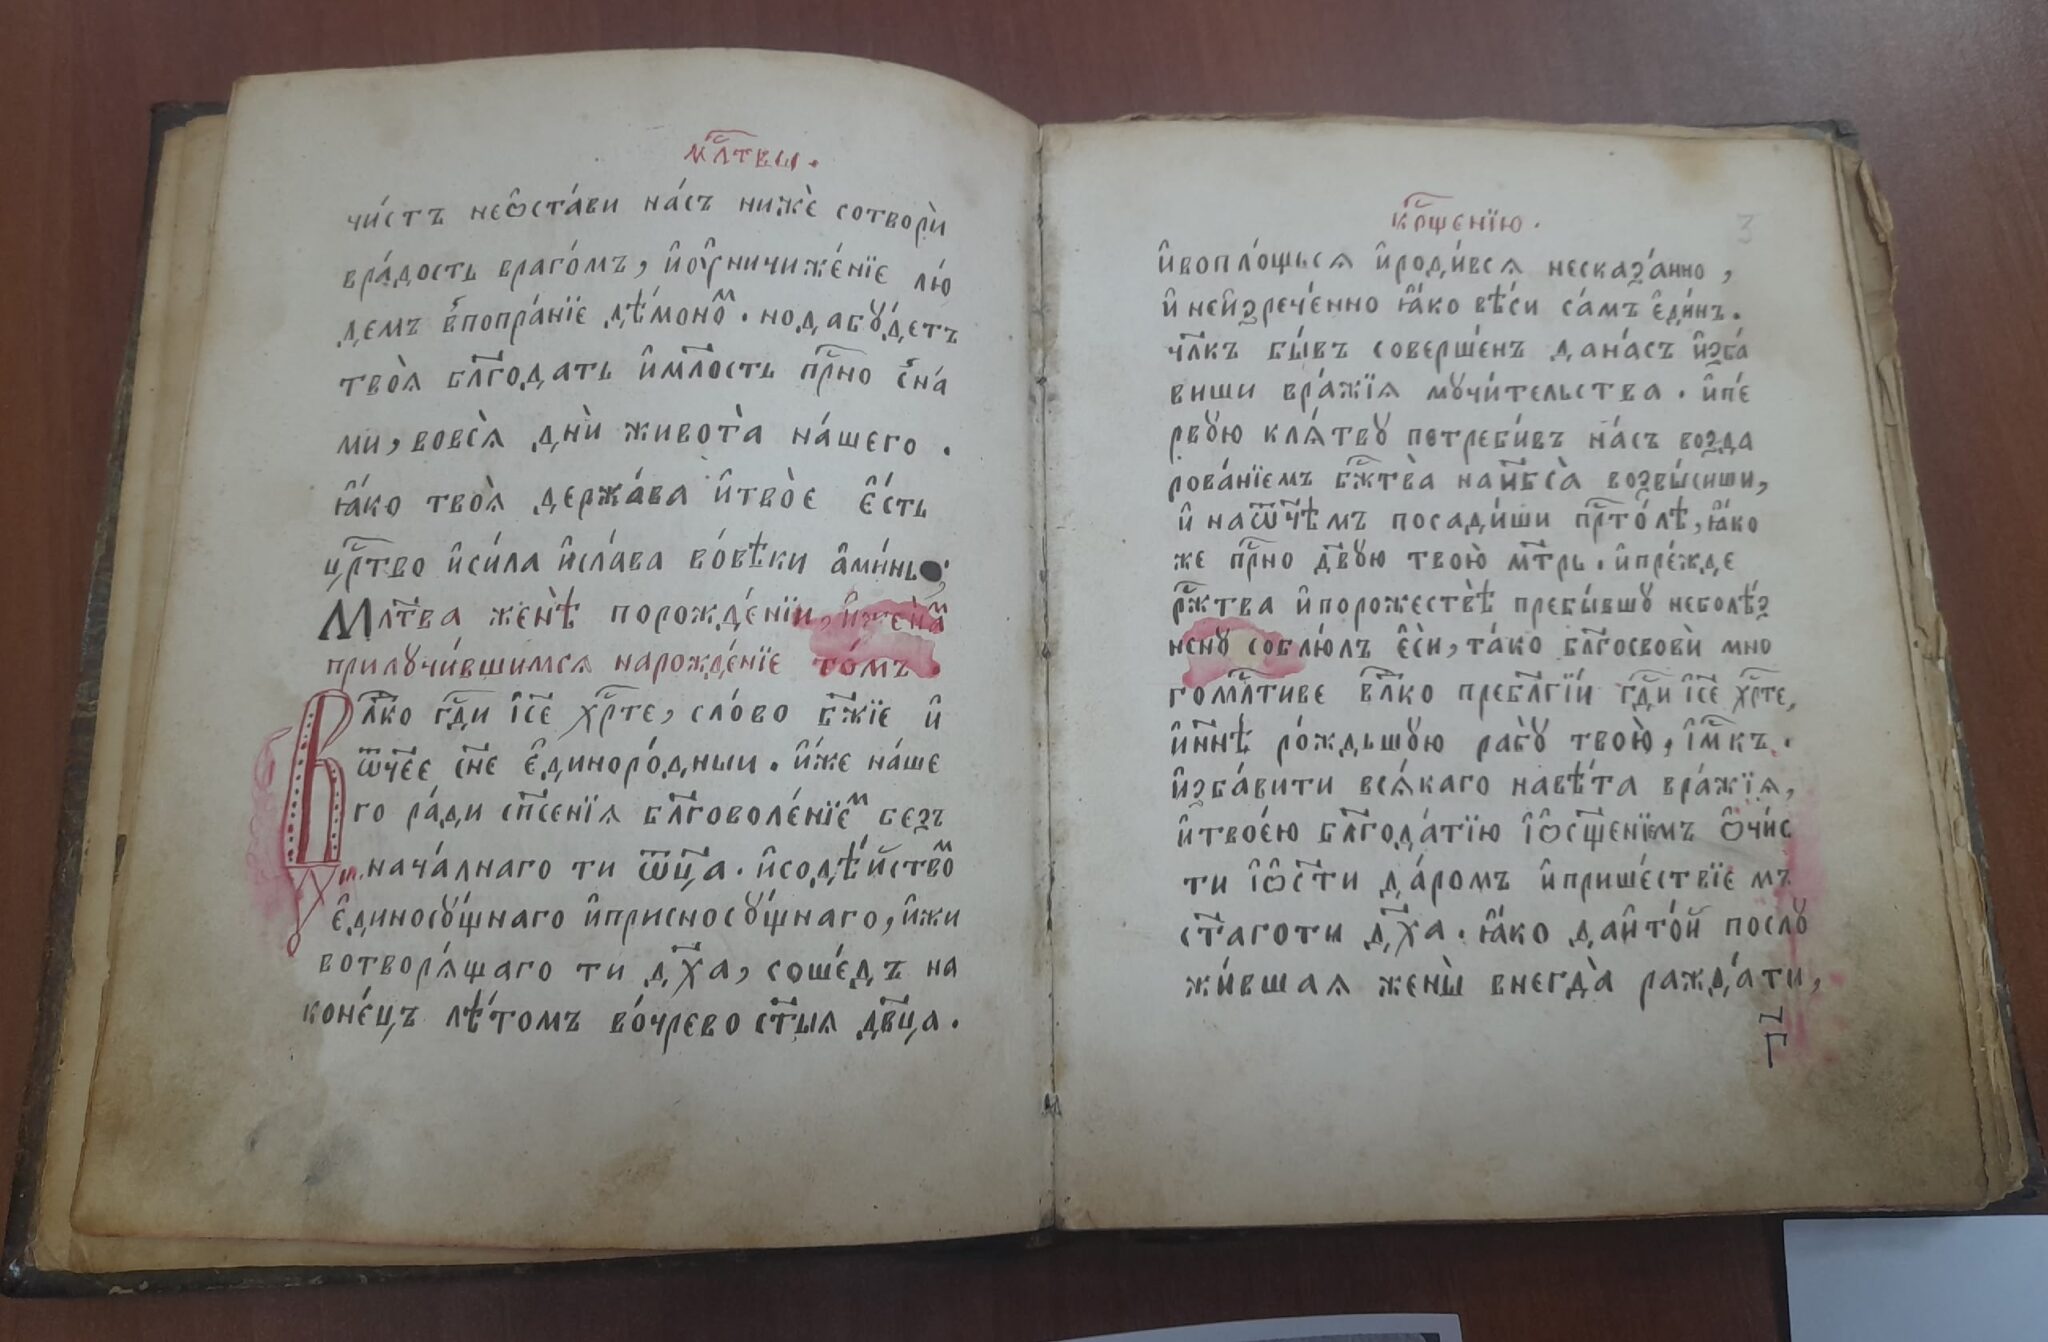 мл҃твы.
чи́стъ неѻста́ви на́съ нижѐ сотворѝ
вра́дость враго́мъ, и҆оу҆ничиже́нїе лю́
демъ в̾попра́нїе дѣ́моноⷨ. но да бꙋ́детъ
твоѧ̀ бл҃года́ть и҆мл҃ость пр҇но с̾на́
ми, вовсѧ̀ днѝ живота̀ на́шего.
ꙗ҆́ко твоѧ̀ держа́ва и҆твоѐ є҆́сть
цр҇тво и҆си́ла и҆сла́ва во́вѣки а҆ми́нь
Мл҃тва женѣ̀ порожде́нїи, и҆жена́ⷨ
прилꙋчи́вшимсѧ нарожде́нїе то́мъ.
Влⷣко гдⷭ҇и і҆с҃е хрⷭ҇те, сло́во бж҃їе и҆
ѿч҃ее сн҃е є҆диноро́дныи. и҆́же на́ше
го ра́ди сп҃сенїѧ бл҃говоле́нїеⷨ безъ
нача́лнаго ти ѿц҃а. и҆содѣ́йствоⷨ
є҆диносꙋ́щнаго и҆присносꙋ́щнаго, и҆жи
вотворѧ́щаго ти дх҃а, соше́дъ на
коне́цъ лѣ́томъ во́чрево ст҃ыѧ дв҃ца.
крⷭ҇щенїю.
3
и҆вопло́щьсѧ и҆роди́всѧ несказа́нно,
и҆ неи҆зрече́нно ꙗ҆́ко вѣ́си са́мъ є҆ди́нъ.
чл҃къ бы́въ соверше́нъ да на́съ и҆зба́
виши вра́жїѧ мꙋчи́тельства. и҆пе́
рвꙋю клѧ́твꙋ потреби́въ на́съ возда
рова́нїемъ бж҇тва̀ нан҃бса̀ возвы́сиши,
и҆ наѿч҃ѣмъ посади́ши прⷭ҇то́лѣ, ꙗ҆́ко
же пр҇но дв҃ꙋю твою̀ мт҃рь. и҆пре́жде
рж҇тва и҆порожествѣ̀ пребы́вшꙋ неболѣ́з
ненꙋ соблю́лъ є҆сѝ, та́ко бл҃госвовѝ мно
гомл҇тиве влⷣко пребл҃гїи гдⷭ҇и і҆с҃е хрⷭ҇те,
и҆нн҃ѣ ро́ждьшꙋю рабꙋ̀ твою̀, і҆м҃къ.
и҆зба́вити всѧ́каго навѣ́та вра́жїѧ,
и҆твое́ю бл҃года́тїю і҆ѻсщ҃енїемъ ѻ҆чи́с
ти і҆ѻс҃ти да́ромъ и҆прише́ствїе мъ
ст҃аготи дх҃а. ꙗ҆́ко даи҆то́й послꙋ
жи́вшаѧ жены̀ внегда̀ ражда́ти,